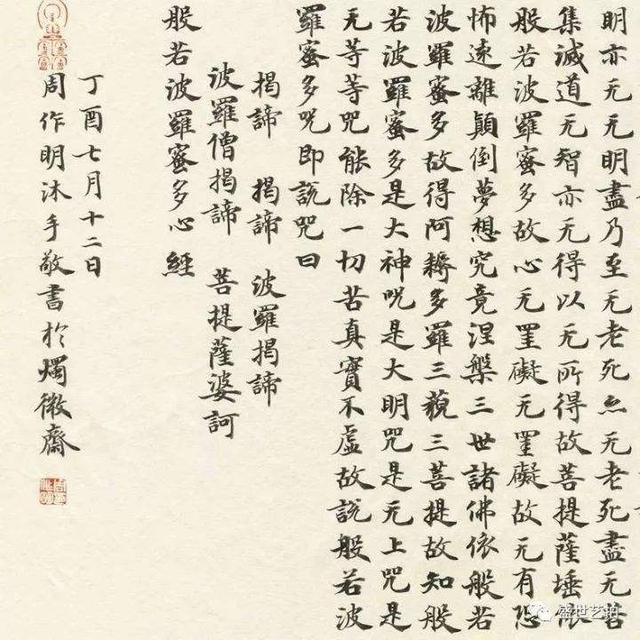 明亦无无明盡乃至无老死亦无老死盡无苦
集滅道无智亦无得以无所得故菩提薩埵依
般若波羅蜜多故心无罣礙无罣礙故无有恐
怖遠離顛倒夢想究竟涅槃三世諸佛依般若
波羅蜜多故得阿耨多羅三藐三菩提故知般
若波羅蜜多是大神咒是大明咒是无上咒是
无等等咒能除一切苦真實不虛故說般若波
羅蜜多咒即說咒曰
揭諦 揭諦 波羅揭諦
波羅僧揭諦 菩提薩婆訶
般若波羅蜜多心經
丁酉七月十二日
周作明沐手敬書於燭微齋
盛世艺拍